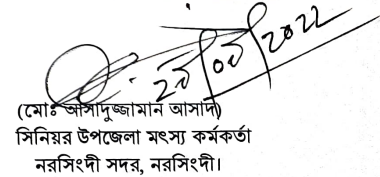 (মোঃ আসাদুজ্জামান আসাদ)
সিনিয়র উপজেলা মৎস্য কর্মকর্তা
নরসিংদী সদর, নরসিংদী।